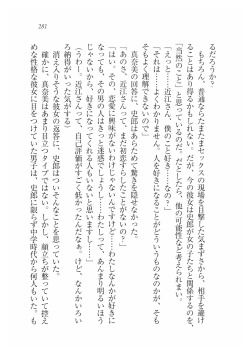 281
るだろうか?
もちろん、普通ならたまたまセックスの現場を目撃した気まずさから、相手を避け
ることはあり得るかもしれない。だが、今の彼女は史郎が女子たちと関係するのを、
「当然のこと」と思っているのだ。だとしたら、他の可能性など考えられまい。
「えっと……近江さん、僕のこと好き……なの?」
「はいっ? そ、それは……えっと……好きとか、そういうことがどういうものなのかが、そも
そもよく理解できないので」
真奈美の回答に、史郎はあらためて驚きを隠せなかった。
「あのさ、近江さんって、まだ初恋すらしたことがないの?」
「はい。その、恋愛に興味がないわけじゃないんですけど……わたしなんかが好きに
なっても、その男の人はきっと迷惑でしょうし……わたしって、あんまり明るいほう
じゃないから、好きになってくれる人もいないと思いますし……」
(うわー。近江さんって、自己評価がすごく低かったんだなぁ。けど、なんかいろい
ろ納得がいった気がする)
消え入りそうな彼女の返答に、史郎はついそんなことを思っていた。
確かに、真奈美はあまり目立つタイプではない。しかし、顔立ちが整っていて控え
めな性格な彼女に目をつけていた男子は、史郎に限らず中学時代から何人もいた。も